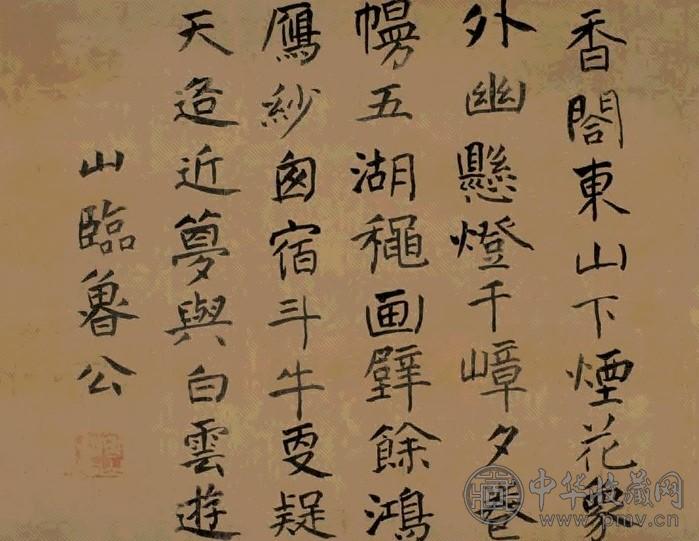 香閤東山下煙花象
外幽懸燈千嶂夕卷
幔五湖穐画壁餘鴻
鴈紗囱宿斗牛更疑
天近夢與白雲遊
山臨魯公
中华收藏网
www.pmv.cn